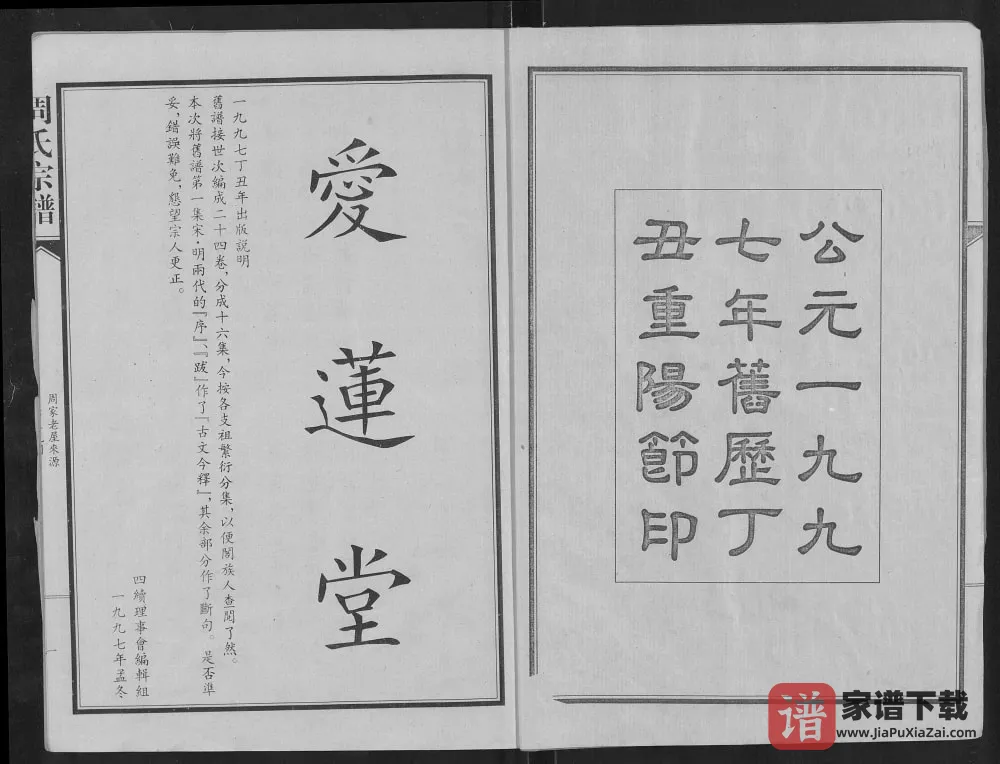 公元一九九
七年舊歷丁
丑重陽節印
愛蓮堂
一九九七丁丑年出版説明
舊譜接世次編成二十四卷，分成十六集，今按各支祖繁衍分集，以便閣族人查閲了然。
本次將舊譜第一集宋·明兩代的『序』、『跋』作了『古文今釋』，其余部分作了斷句。是否準
妥，錯誤難免，懇望宗人更正。
四續理事會編輯組
一九九七年孟冬
周氏宗譜
周家老屋來源
一
家谱下载
www.JiaPuXiaZai.com
谱